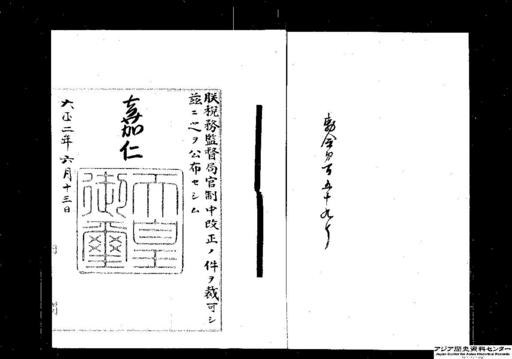 勅令第百五十九号
朕税務監督局官制中改正ノ件ヲ裁可シ
茲ニ之ヲ公布セシム
嘉仁
天皇
御璽
大正二年六月十三日
アジア歴史資料センター
Japan Center for Asian Historical Records